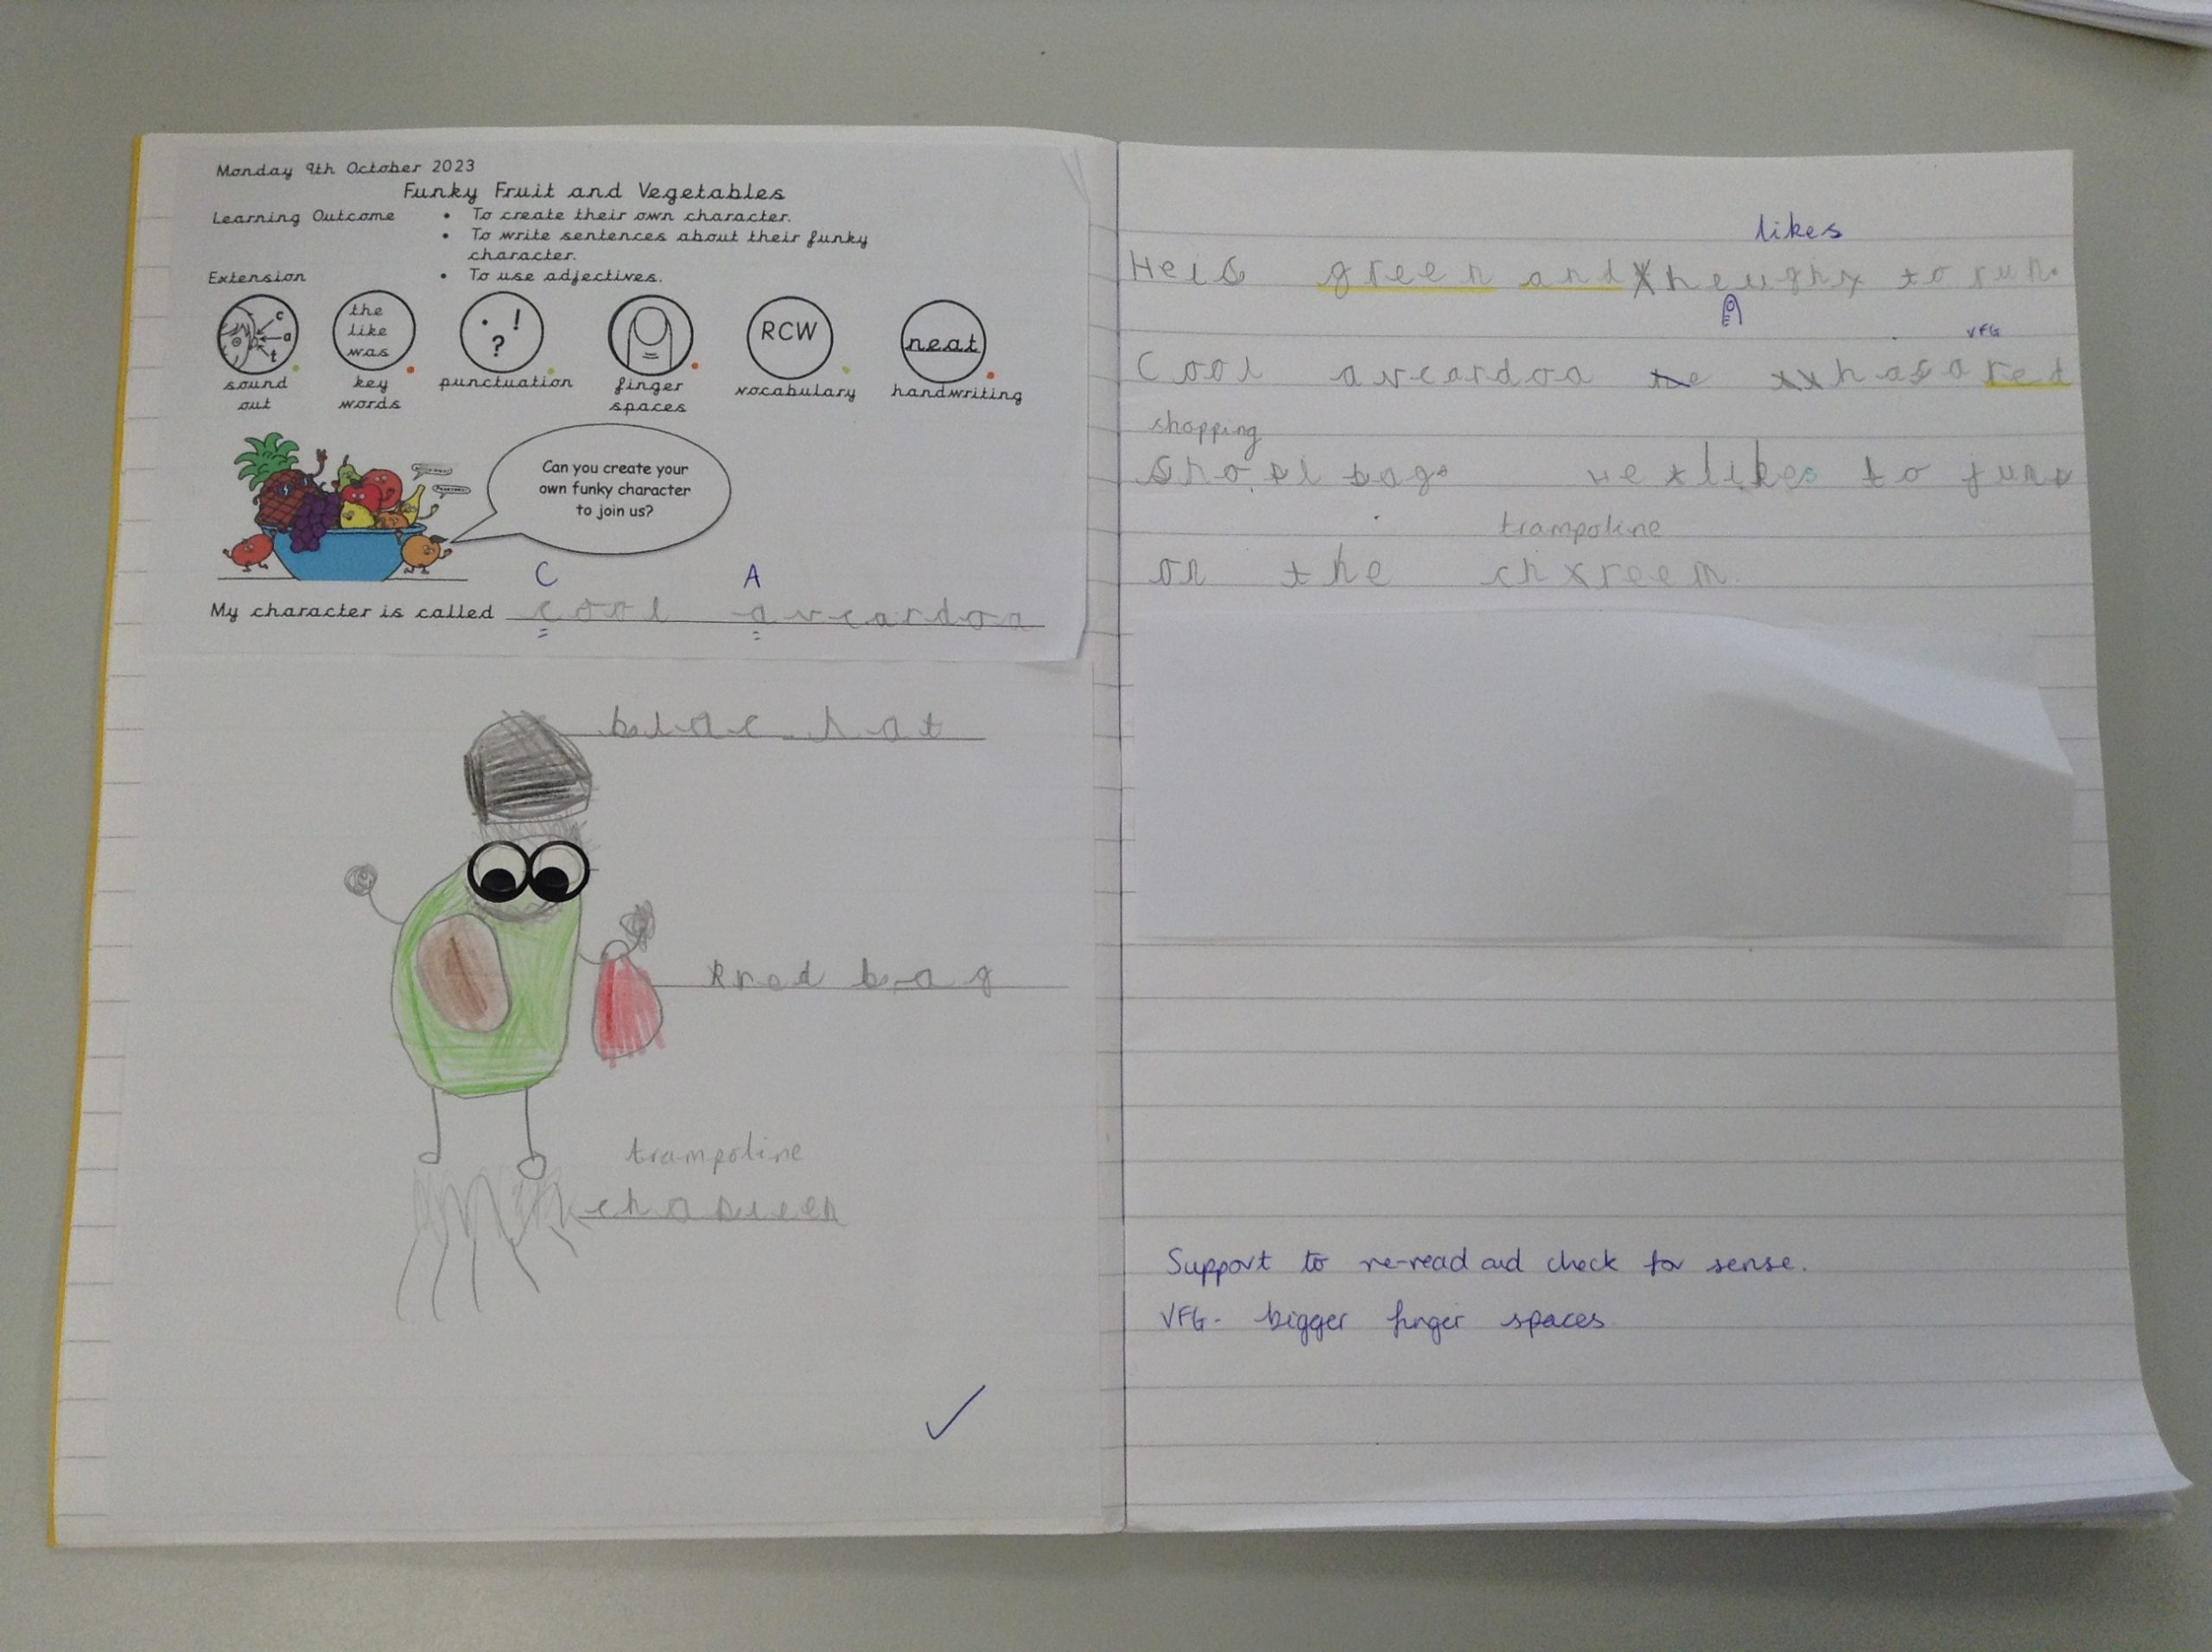 Monday 9th October 2023
Funky Fruit and Vegetables
Learning Outcome
• To create their own character.
• To write sentences about their funky
character.
Extension
• To use adjectives.
c
a
t
the
like
was
. !
?
RCW
neat
sound
out
key
words
punctuation
finger
spaces
vocabulary
handwriting
Can you create your
own funky character
to join us?
C A
My character is called cool avcardoa
blac hat
rred bag
trampoline
likes
He is green and to run.
VFG
Cool avcardoa has a red
shopping
bag. He likes to
trampoline
on the
Support to re-read and check for sense.
VFG - bigger finger spaces